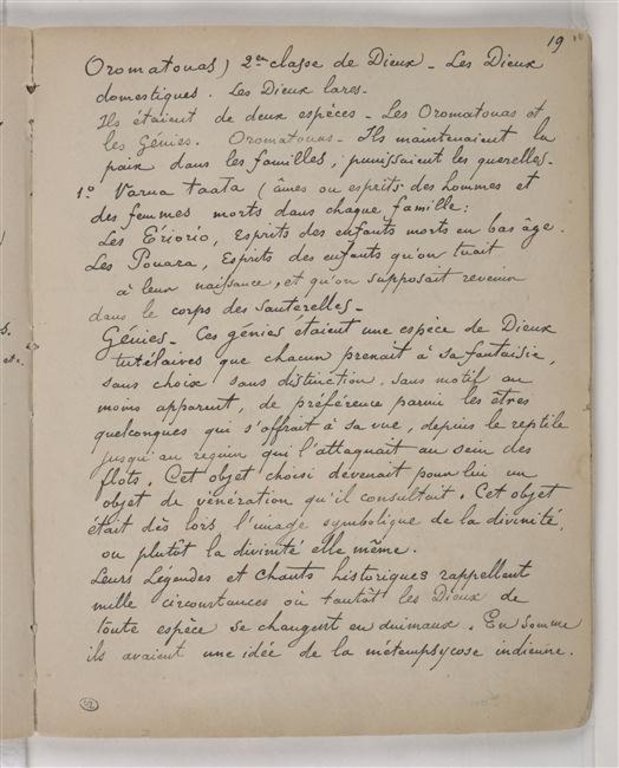 19
Oromatouas) 2em classe de Dieux - Les Dieux
domestiques. Les Dieux lares -
Ils étaient de deux espèces - Les Oromatouas et
les Génies. Oromatouas - Ils maintenaient la
paix dans les familles, punissaient les querelles -
1.o Varua taata (âmes ou esprits des hommes et
des femmes morts dans chaque famille:
Les Ériorio, Esprits des enfants morts en bas âge.
Les Pouara, Esprits des enfants qu'on tuait
à leur naissance, et qu'on supposait revenir
dans le corps des sauterelles -
Génies - Ces génies étaient une espèce de Dieux
tutélaires que chacun prenait à sa fantaisie,
sans choix sans distinction, sans motif au
moins apparent, de préférence parmi les êtres
quelconques qui s'offrait à sa vue, depuis le reptile
jusqu'au requin qui l'attaquait au sein des
flots. Cet objet choisi devenait pour lui un
objet de vénération qu'il consultait. Cet objet
était dès lors l'image symbolique de la divinité,
ou plutôt la divinité elle même.
Leurs Légendes et Chants historiques rappellent
mille circonstances où tantôt les Dieux de
toute espèce se changent en animaux. En somme
ils avaient une idée de la métempsycose indienne.